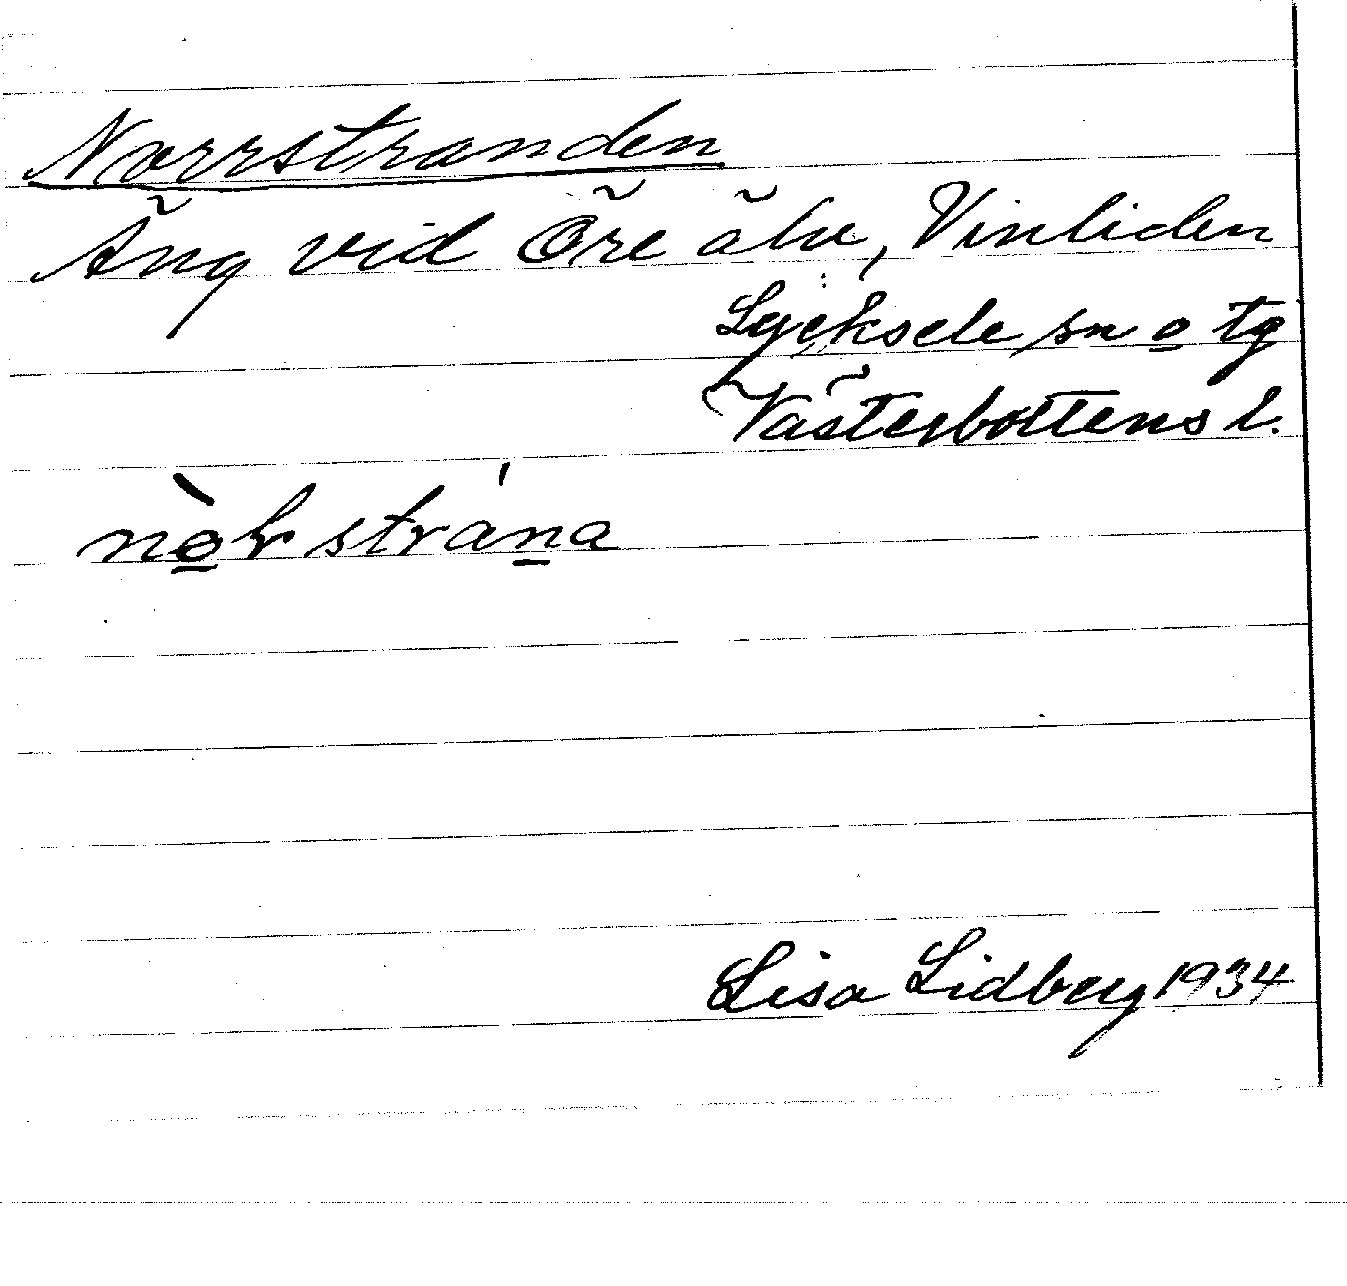 Norrstranden
Äng vid Öre älv, Vinliden
Lycksele sn o tg
Västerbottens l.
Lisa Lidberg 1934